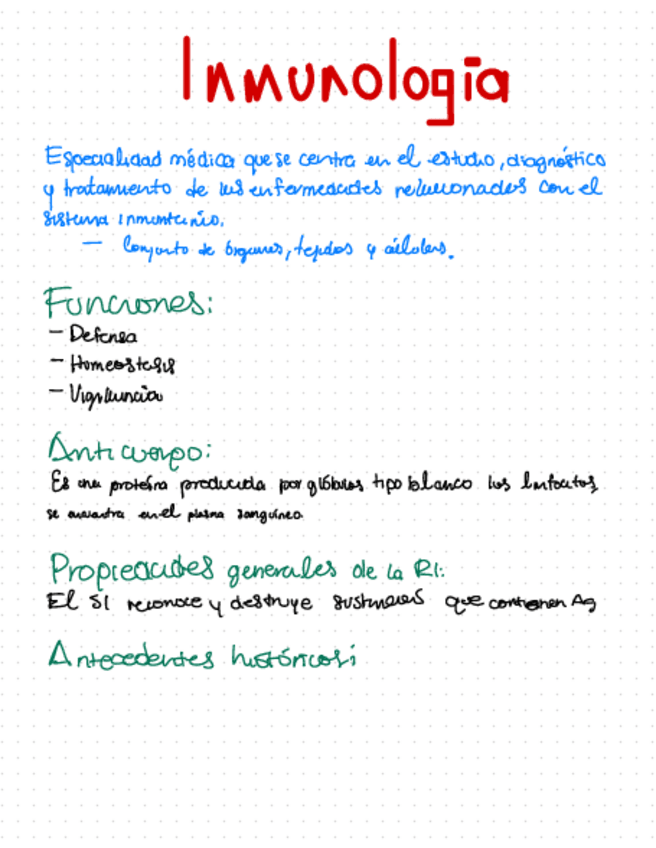 Inmunología
Especialidad médica que se centra en el estudio, diagnóstico
y tratamiento de las enfermedades relacionados con el
sistema inmunitario.
— Conjunto de órganos, tejidos y células.
Funciones:
— Defensa
— Homeostasis
— Vigilancia
Anticuerpo:
Es una proteína producida por glóbulos tipo blanco los linfocitos
se encuentra en el plasma sanguíneo.
Propiedades generales de la RI:
El SI reconoce y destruye sustancias que contienen Ag
Antecedentes históricos: